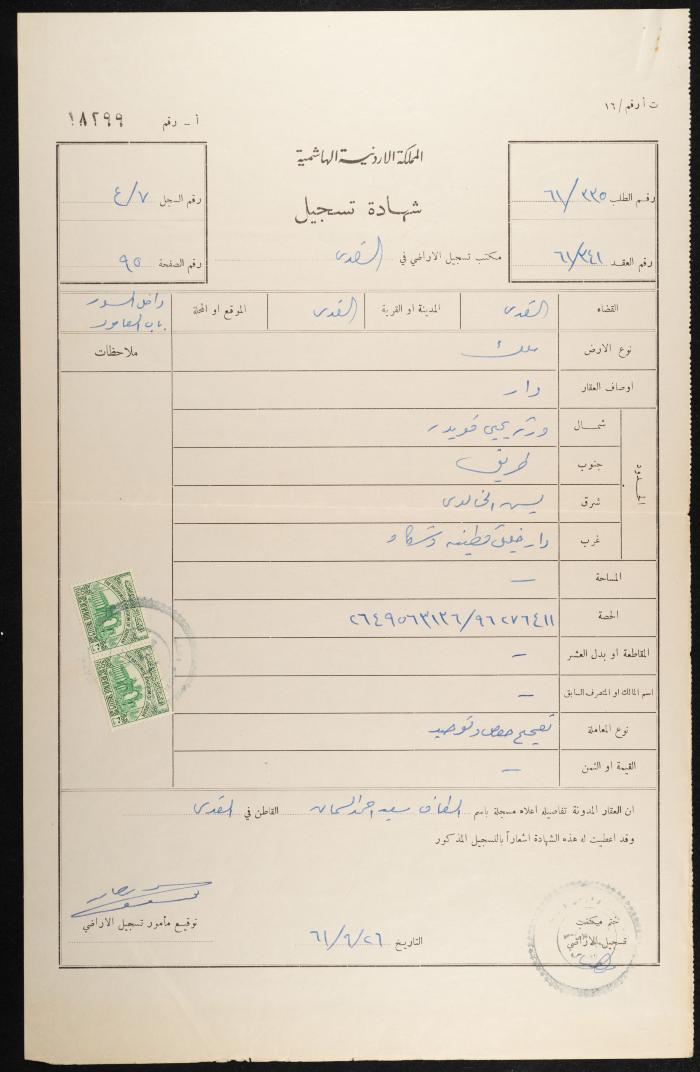 ت أ رقم /١٦
أ - رقم ١٨٢٩٩
المملكة الاردنية الهاشمية
شهادة تسجيل
رقم الطلب ٦١/٣٣٥
رقم السجل ٤/٧
مكتب تسجيل الاراضي في القدس
رقم العقد ٦١/٣٤١
رقم الصفحة ٩٥
القضاء القدس المدينة او القرية القدس الموقع او المحلة داخل السور
باب العامود
نوع الارض ملك ملاحظات
اوصاف العقار دار
الحدود
شمال ورثة يحيى قويدر
جنوب طريق
شرق يسن الخالدي
غرب دار خليل قطينه
المساحة —
الحصة ٢٦٤٩٥٦٣١٣٦/٩٦٢٧٦٤١١
المقاطعة او بدل العشر —
اسم المالك او المتصرف السابق —
نوع المعاملة تصحيح حصص وتوحيد
القيمة او الثمن —
ان العقار المدونة تفاصيله اعلاه مسجلة باسم سعيد احمد السمان القاطن في القدس
وقد اعطيت له هذه الشهادة اشعاراً بالتسجيل المذكور
ختم مكتب
تسجيل الاراضي
التاريخ ٦١/٩/٢٦
توقيع مأمور تسجيل الاراضي